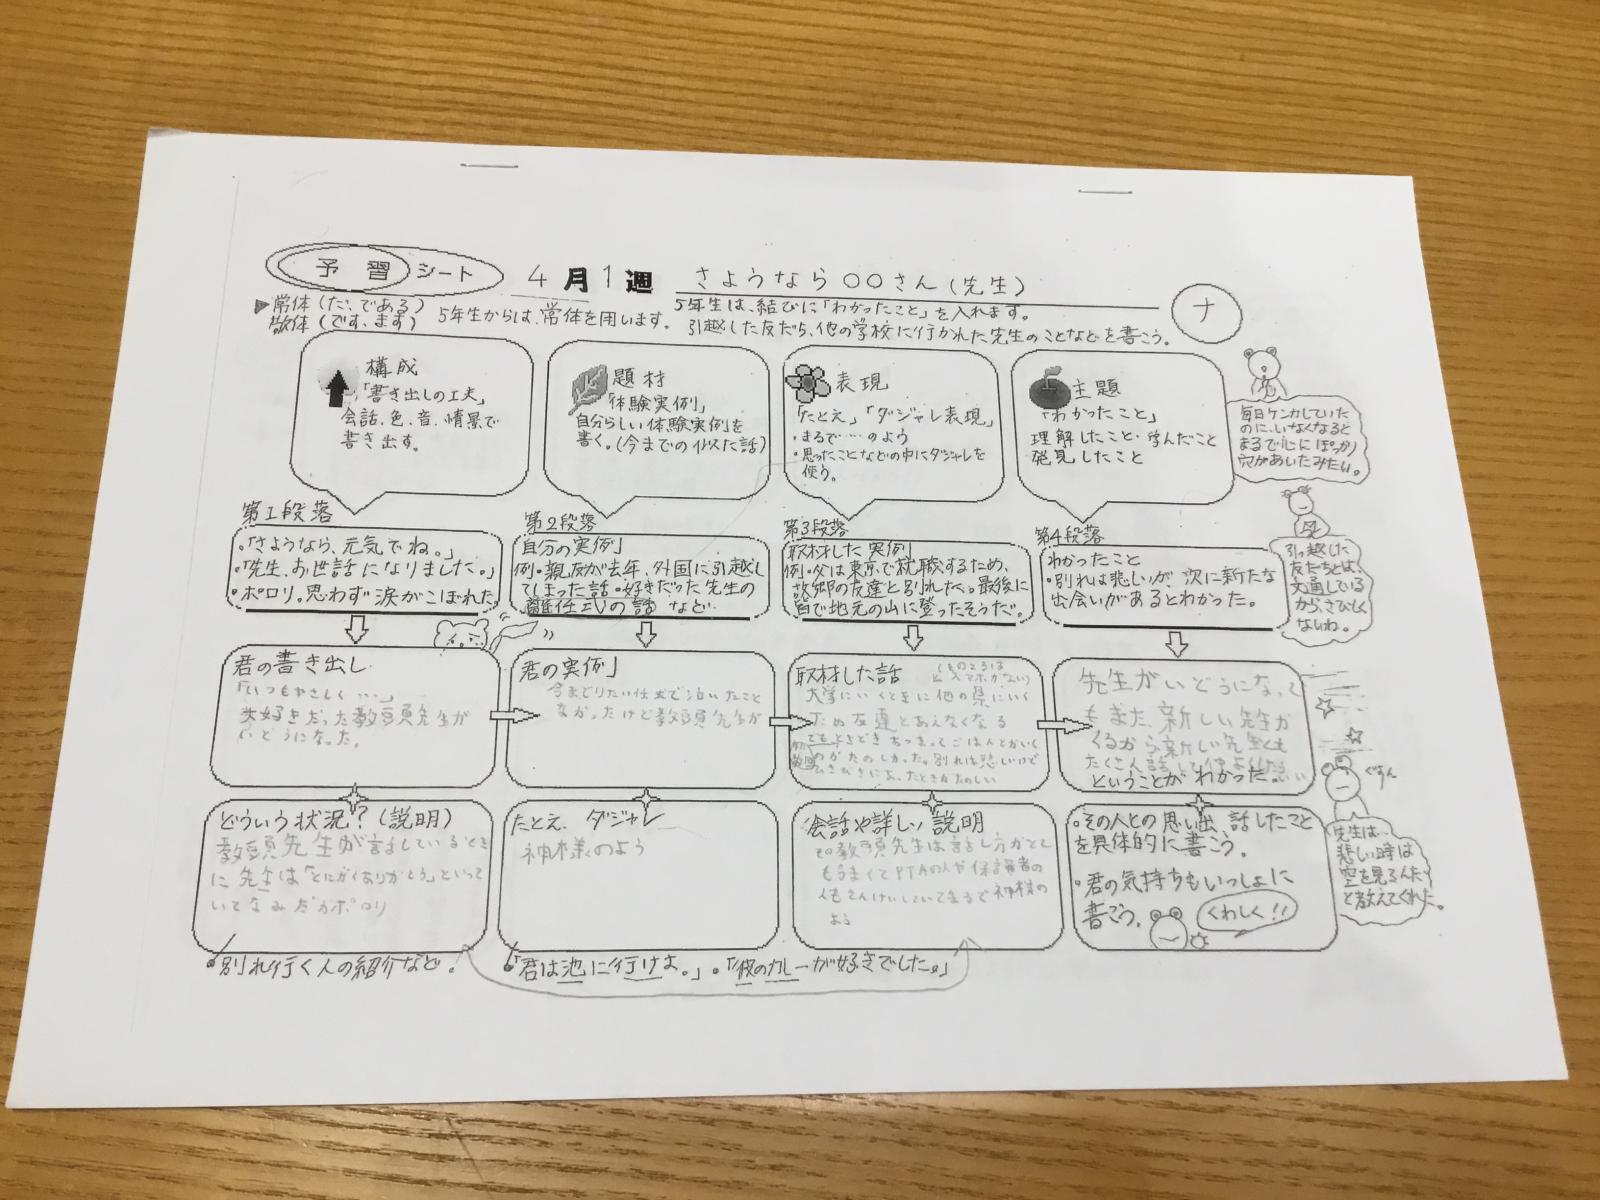 予習シート
4月1週 さようなら○○さん(先生)
ナ
常体(だ、である)
敬体(です、ます)
5年生からは、常体を用います。
5年生は、結びに「わかったこと」を入れます。
引越した友だち、他の学校に行かれた先生のことなどを書こう。
構成
「書き出しの工夫」
会話、色、音、情景で
書き出す。
題材
「体験実例」
自分らしい体験実例を
書く。(今までの似た話)
表現
「たとえ」「ダジャレ表現」
・まるで…のよう
・思ったことなどの中にダジャレを
使う。
主題
「わかったこと」
理解したこと・学んだこと
発見したこと
毎日ケンカしていた
のに、いなくなると
まるで心にぽっかり
穴があいたみたい。
第1段落
・「さようなら、元気でね。」
・「先生、お世話になりました。」
・ポロリ。思わず涙がこぼれた
第2段落
自分の実例」
例・親友が去年、外国に引越し
てしまった話・好きだった先生の
離任式の話 など…
第3段落
取材した実例
例・父は東京で就職するため、
故郷の友達と別れた。最後に
皆で地元の山に登ったそうだ。
第4段落
わかったこと
・別れは悲しいが、次に新たな
出会いがあるとわかった。
引っ越した
友だちとは、
文通している
から、さびしく
ないね。
君の書き出し
「いつもやさしく…」
大好きだった教頭先生が
いどうになった。
君の実例」
今までりたい任式で泣いたこと
なかったけど教頭先生が
取材した話
大学にいくときに他の県にいく
ため友達とあえなくなる
でもときどきあつまってごはんとかいく
のがたのしかった。別れは悲しいけど
ひさびさにあったときがたのしい
先生がいどうになって
もまた、新しい先生が
くるから新しい先生とも
たくさん話して
ということがわかった。
どういう状況?(説明)
教頭先生が話しているとき
に先生は「とにかくありがとう」といって
いてなみだがポロリ
・別れ行く人の紹介など。
たとえ、ダジャレ
神様のよう
・「君は池に行けよ。」・「彼のカレーが好きでした。」
会話や詳しい説明
その教頭先生は話し方がとて
もうまくてPTAの人や保護者の
人もそんけいしていてまるで神様の
よう
・その人との思い出、話したこと
を具体的に書こう。
・君の気持ちもいっしょに
書こう。
くわしく!!
ぐすん
先生は…
悲しい時は
空を見るんだ
と教えてくれた。